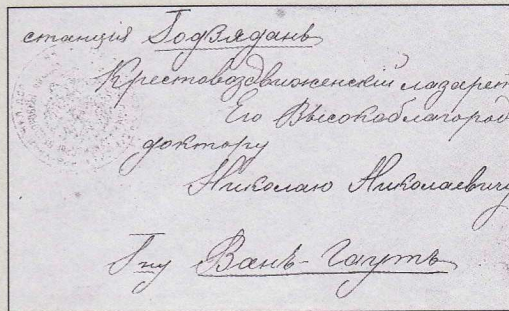 станція Годзяданъ
Крестовоздвиженскій лазарет
Его Высокоблагород
доктору
Николаю Николаевичу
Гну Ванъ-Гаутъ